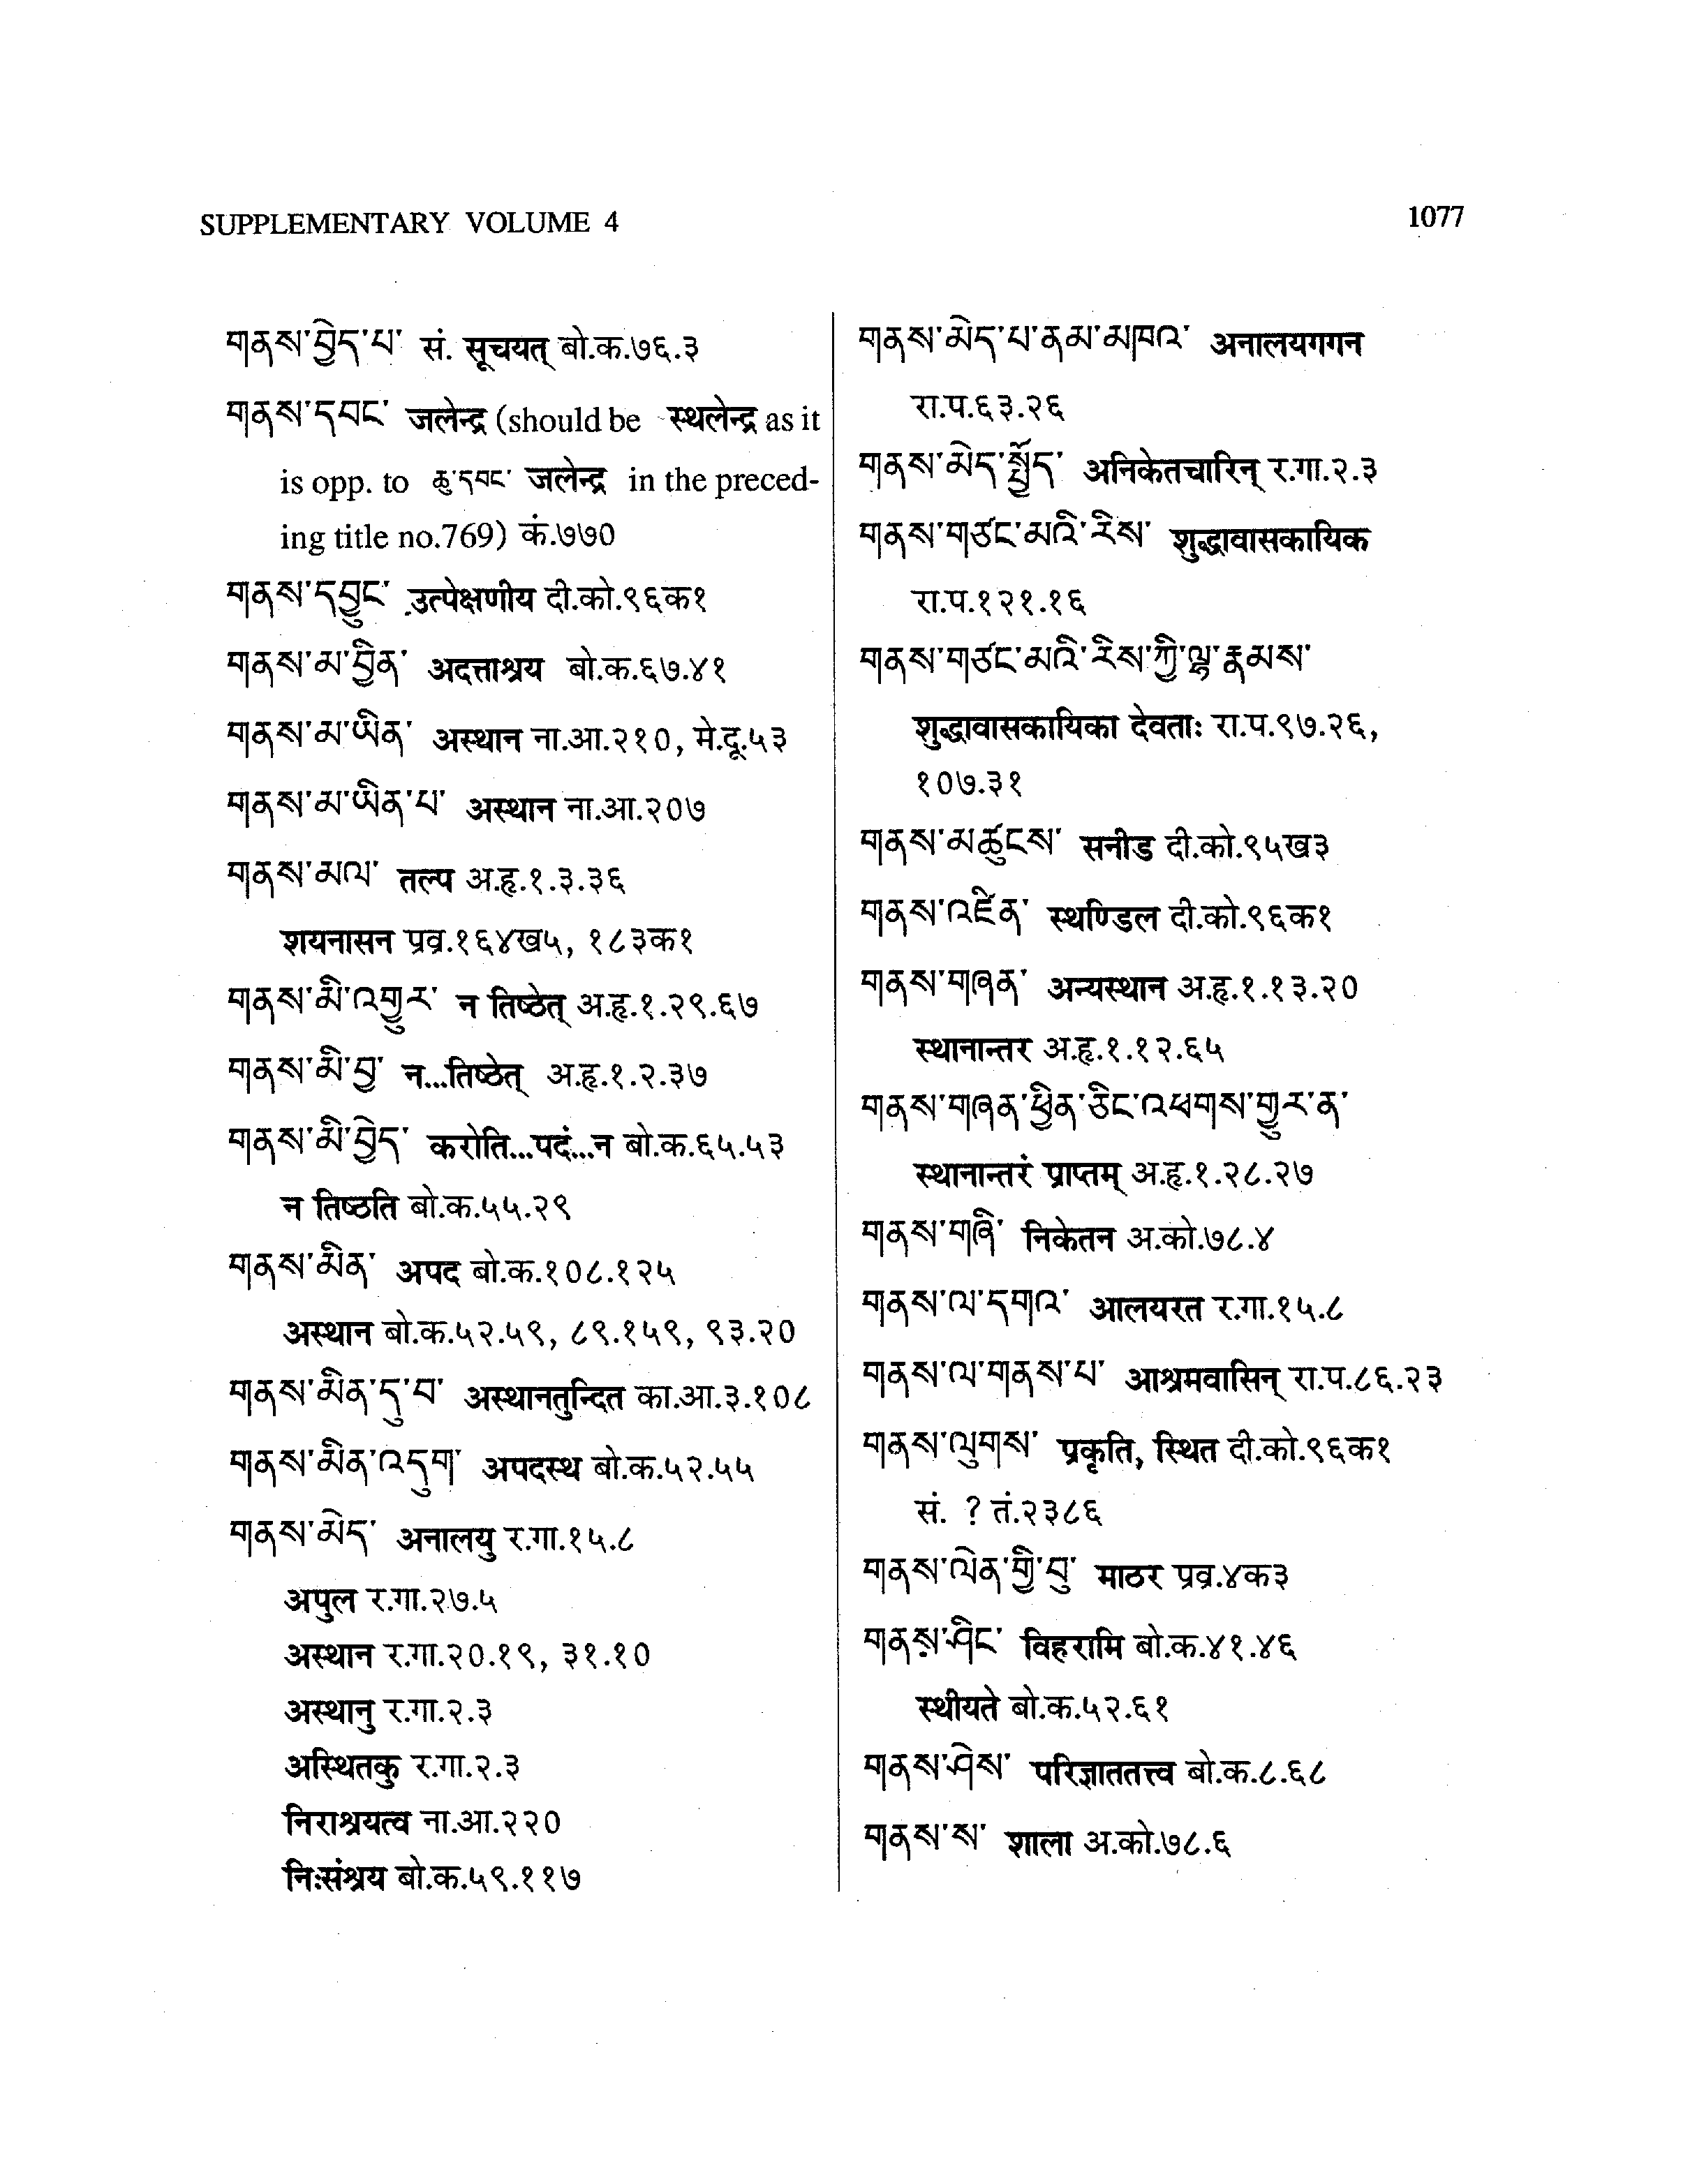 SUPPLEMENTARY VOLUME 4
1077
གནས་བྱེད་པ་ सं. सूचयत् बो.क.७६.३
གནས་དབང་ जलेन्द्र (should be स्थलेन्द्र as it
is opp. to ཆུ་དབང་ जलेन्द्र in the preced-
ing title no.769) कं.७७०
གནས་དབྱུང་ उत्पेक्षणीय दी.को.९६क१
གནས་མ་བྱིན་ अदत्ताश्रय बो.क.६७.४१
གནས་མ་ཡིན་ अस्थान ना.आ.२१०, मे.दू.५३
གནས་མ་ཡིན་པ་ अस्थान ना.आ.२०७
གནས་མལ་ तल्प अ.हृ.१.३.३६
शयनासन प्रव्र.१६४ख५, १८३क१
གནས་མི་འགྱུར་ न तिष्ठेत् अ.हृ.१.२९.६७
གནས་མི་བྱ་ न...तिष्ठेत् अ.हृ.१.२.३७
གནས་མི་བྱེད་ करोति...पदं...न बो.क.६५.५३
न तिष्ठति बो.क.५५.२९
གནས་མིན་ अपद बो.क.१०८.१२५
अस्थान बो.क.५२.५९, ८९.१५९, ९३.२०
གནས་མིན་དུ་བ་ अस्थानतुन्दित का.आ.३.१०८
གནས་མིན་འདུག་ अपदस्थ बो.क.५२.५५
གནས་མེད་ अनालयु र.गा.१५.८
अपुल र.गा.२७.५
अस्थान र.गा.२०.१९, ३१.१०
अस्थानु र.गा.२.३
अस्थितकु र.गा.२.३
निराश्रयत्व ना.आ.२२०
निःसंश्रय बो.क.५९.११७
གནས་མེད་པ་ནམ་མཁའ་ अनालयगगन
रा.प.६३.२६
གནས་མེད་སྤྱོད་ अनिकेतचारिन् र.गा.२.३
གནས་གཙང་མའི་རིས་ शुद्धावासकायिक
रा.प.१२१.१६
གནས་གཙང་མའི་རིས་ཀྱི་ལྷ་རྣམས་
शुद्धावासकायिका देवताः रा.प.९७.२६,
१०७.३१
གནས་མཚུངས་ सनीड दी.को.९५ख३
གནས་འཛིན་ स्थण्डिल दी.को.९६क१
གནས་གཞན་ अन्यस्थान अ.हृ.१.१३.२०
स्थानान्तर अ.हृ.१.१२.६५
གནས་གཞན་ཕྱིན་ཅིང་འཕགས་གྱུར་ན་
स्थानान्तरं प्राप्तम् अ.हृ.१.२८.२७
གནས་གཞི་ निकेतन अ.को.७८.४
གནས་ལ་དགའ་ आलयरत र.गा.१५.८
གནས་ལ་གནས་པ་ आश्रमवासिन् रा.प.८६.२३
གནས་ལུགས་ प्रकृति, स्थित दी.को.९६क१
सं. ? तं.२३८६
གནས་ལེན་གྱི་བུ་ माठर प्रव्र.४क३
གནས་ཤིང་ विहरामि बो.क.४१.४६
स्थीयते बो.क.५२.६१
གནས་ཤེས་ परिज्ञाततत्त्व बो.क.८.६८
གནས་ས་ शाला अ.को.७८.६